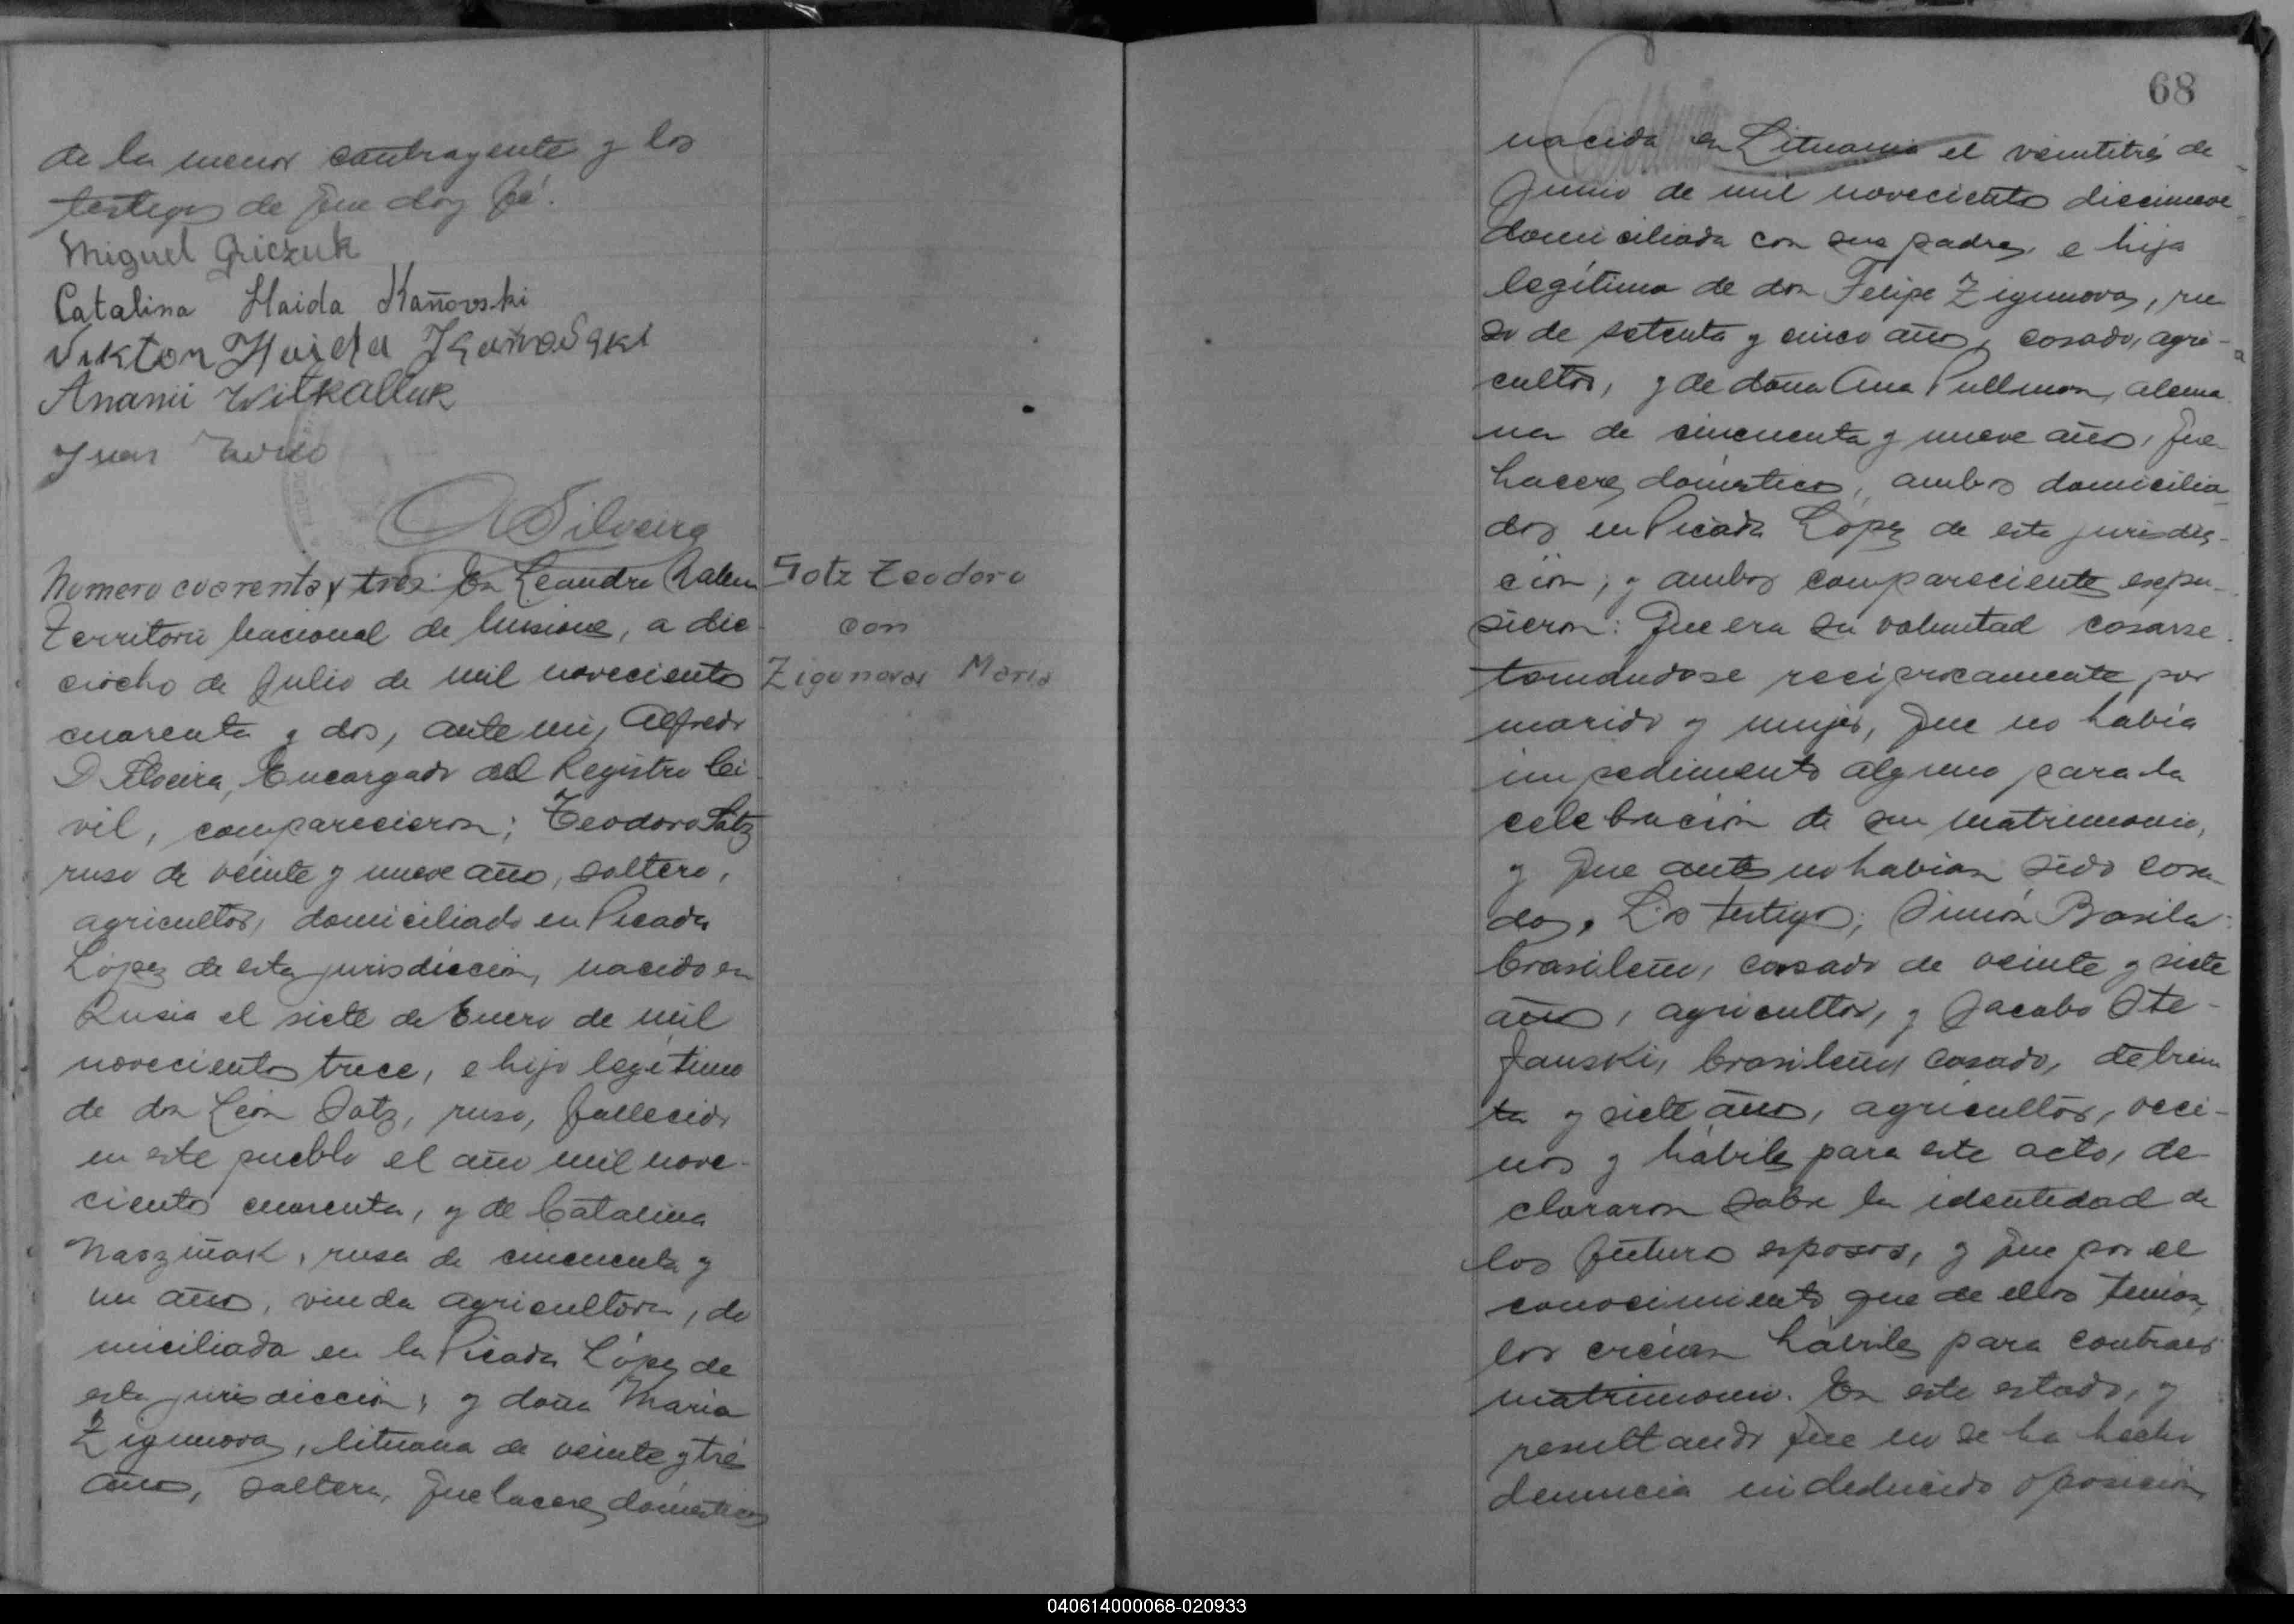 de la menor contrayente y los
testigos de que doy fé.
Miguel Griczuk
Catalina Haida Kañovski
Viktor Haida Kañovski
Ananii Witkalluk
Juan
ASilveira
Numero cuarenta y tres: En Leandro N. Alem
Territorio Nacional de Misiones, a die-
ciocho de Julio de mil novecientos
cuarenta y dos, ante mi, Alfredo
D. Silveira, Encargado del Registro Ci-
vil, comparecieron; Teodoro Satz
ruso de veinte y nueve años, soltero,
agricultor, domiciliado en Picada
López de esta jurisdiccion, nacido en
Rusia el siete de Enero de mil
novecientos trece, e hijo legítimo
de don León Satz, ruso, fallecido
en este pueblo el año mil nove-
cientos cuarenta, y de Catalina
Nasziñak, rusa de cincuenta y
un años, viuda agricultora, do
miciliada en la Picada López de
esta jurisdiccion; y doña Maria
Zigunovas, lituana de veinte y tres
años, soltera, quehaceres domésticos
Satz Teodoro
con
Zigunovas Maria
68
nacida en Lituania el veintitrés de
Junio de mil novecientos diecinueve
domiciliada con sus padres, e hija
legítima de don Felipe Zigunovas, ru
so de setenta y cinco años, casado, agri-
cultor, y de doña Ana Pullman, alema
na de cincuenta y nueve años, que-
haceres domésticos, ambos domicilia
dos en Picada López de esta jurisdic-
ción; y ambos comparecientes expu-
sieron: Que era su voluntad casarse
tomandose reciprocamente por
marido y mujer, que no había
impedimento alguno para la
celebración de su matrimonio,
y que antes no habian sido casa
dos. Los testigos; Simón Basila
brasileño, casado de veinte y siete
años, agricultor, y Jacobo Ste-
fanski, brasileño, casado, de trein
ta y siete años, agricultor, veci-
nos y hábiles para este acto, de-
clararon sobre la identidad de
los futuros esposos, y que por el
conocimiento que de ellos tenian,
los creían hábiles para contraer
matrimonio. En este estado, y
resultando que no se ha hecho
denuncia ni deducido oposición
040614000068-020933